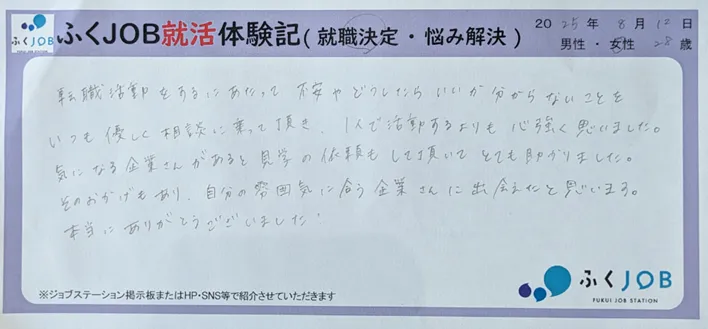 ふくJOB
ふくJOB就活体験記(就職決定・悩み解決)
2025年 8月12日
男性・女性 28歳
転職活動をするにあたって 不安やどうしたらいいか分からないことを
いつも優しく相談に乗って頂き、1人で活動するよりも心強く思いました。
気になる企業さんがあると見学の依頼もして頂いてとても助かりました。
そのおかげもあり、自分の雰囲気に合う企業さんに出会えたと思います。
本当にありがとうございました!
※ジョブステーション掲示板またはHP・SNS等で紹介させていただきます
ふくJOB
FUKUI JOB STATION